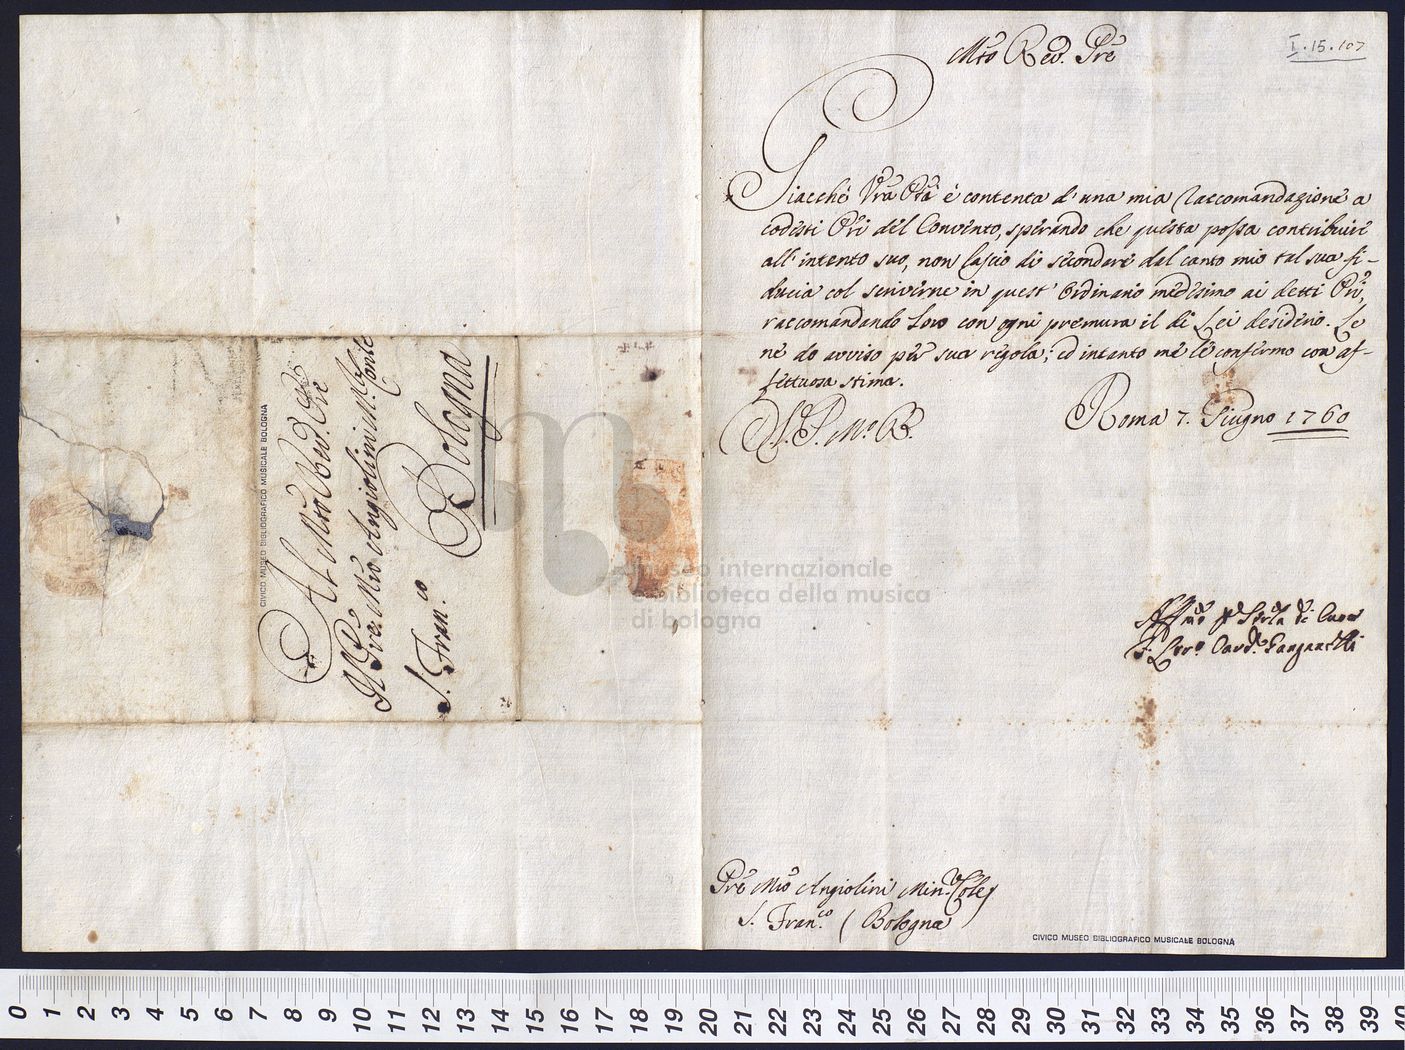 I.15.107
Mto Rev. Pre
Giacchè Vra Ptà è contenta d'una mia raccomandazione a
codesti Pri del Convento, sperando che questa possa contribuire
all'intento suo, non lascio di secondare dal canto mio tal sua fi-
ducia col scriverne in quest'Ordinario medesimo ai detti Pri,
raccomandando loro con ogni premura il di Lei desiderio. Le
ne do avviso per sua regola; ed intanto me le confermo con af-
fettuosa stima.
D. S. P. Mo R.
Roma 7. Giugno 1760
Affmo di Cuore
F. Lor.o Card. Ganganelli
Pre Mro Angiolini Min. Cole
S. Fran.co (Bologna
CIVICO MUSEO BIBLIOGRAFICO MUSICALE BOLOGNA
Al Mto Rev. Pre
Il Pre Mro Angiolini M. Conle
S. Fran.co
Bologna
CIVICO MUSEO BIBLIOGRAFICO MUSICALE BOLOGNA
museo internazionale
e biblioteca della musica
di bologna
0 1 2 3 4 5 6 7 8 9 10 11 12 13 14 15 16 17 18 19 20 21 22 23 24 25 26 27 28 29 30 31 32 33 34 35 36 37 38 39 40